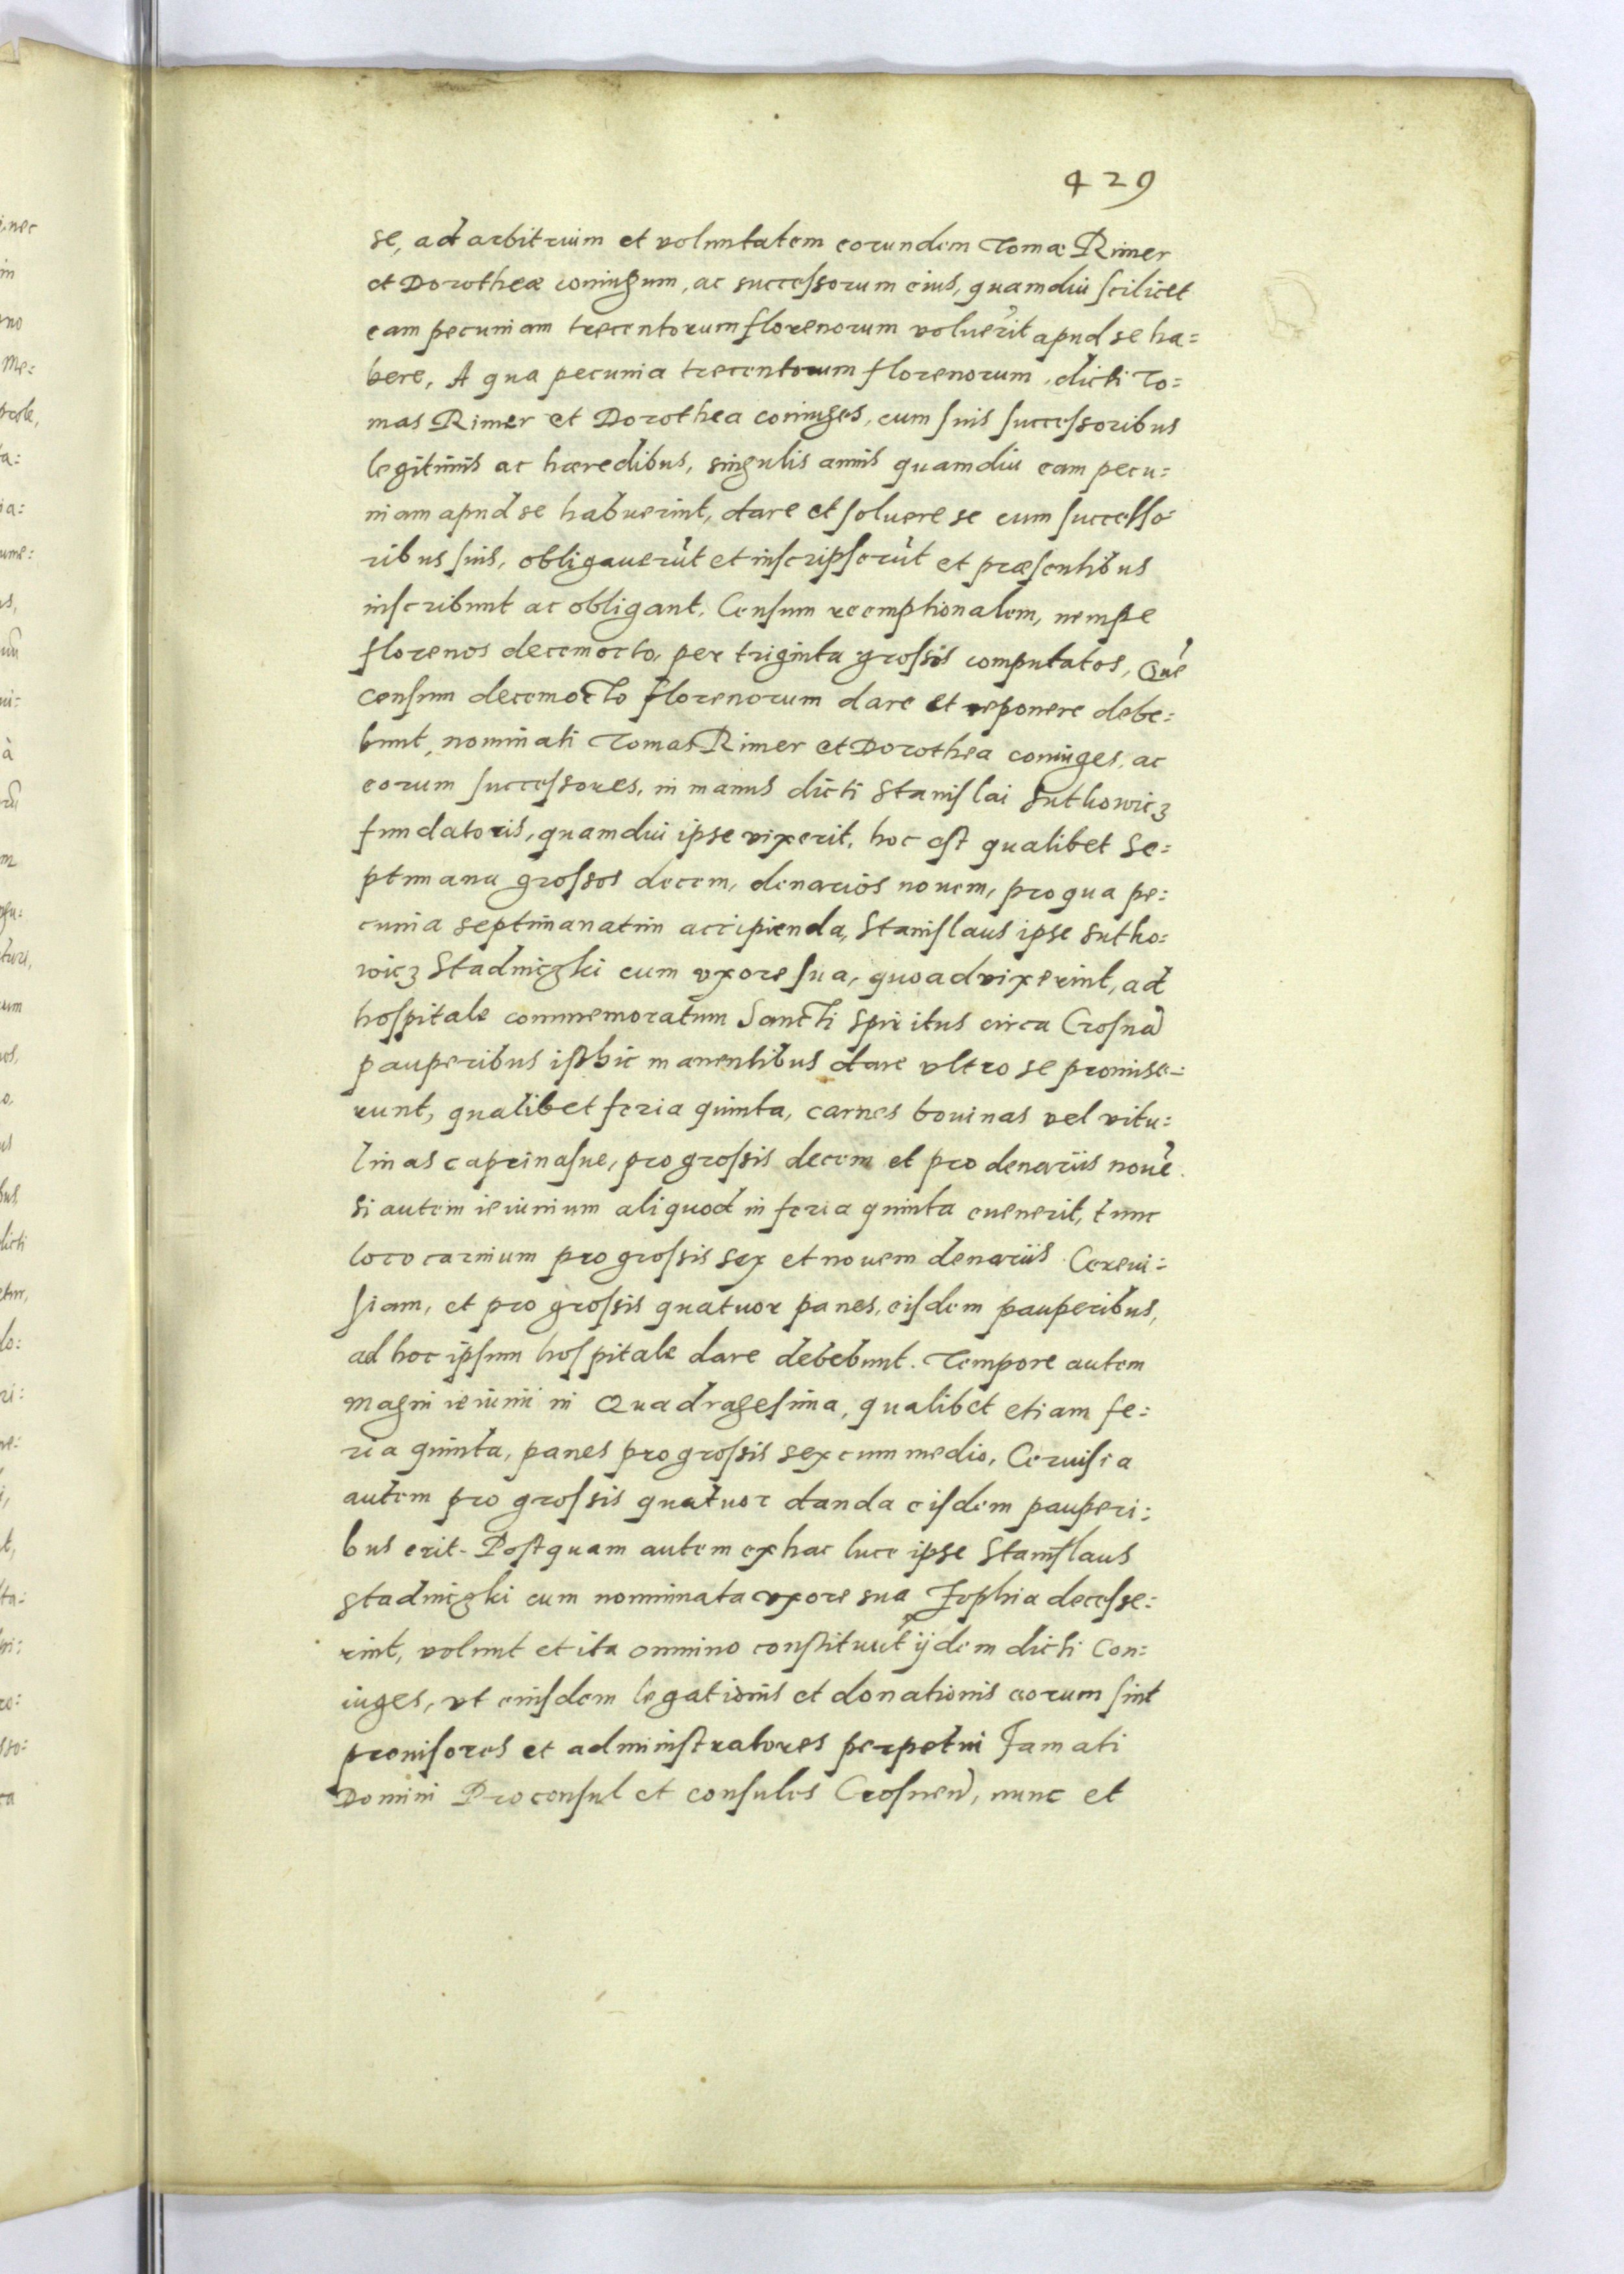 429
se, ad arbitrium et voluntatem eorundem Tomæ Rimer
et Dorotheæ coniugum, ac successorum eius, quamdiu scilicet
eam pecuniam trecentorum florenorum voluerit apud se ha=
bere, A qua pecunia trecentorum florenorum, dicti To=
mas Rimer et Dorothea coniuges, cum suis successoribus
legitimis ac hæredibus, singulis annis quamdiu eam pecu=
niam apud se habuerint, dare et soluere se cum successo=
ribus suis, obligauerūt et inscripserūt et præsentibus
inscribunt ac obligant, Censum reemptionalem, nempe
florenos decemocto, per triginta grossos computatos, Quē
censum decemocto florenorum dare et reponere debe=
bunt, nominati Tomas Rimer et Dorothea coniuges, ac
eorum successores, in manus dicti Stanislai Suthowicz
fundatoris, quamdiu ipse vixerit, hoc est qualibet Se=
ptimana grossos decem, denarios nouem, pro qua pe=
cunia septimanatim accipienda, Stanislaus ipse Sutho=
wicz Stadniczki cum vxore sua, quoad vixerint, ad
hospitale commemoratum Sancti Spiritus circa Crosnā
pauperibus isthic manentibus dare vltro se promise=
runt, qualibet feria quinta, carnes bouinas vel vitu=
linas caprinasue, pro grossis decem et pro denariis nouē.
Si autem ieiunium aliquod in feria quinta euenerit, tunc
loco carnium pro grossis sex et nouem denariis Cereui=
siam, et pro grossis quatuor panes, eisdem pauperibus,
ad hoc ipsum hospitale dare debebunt. Tempore autem
magni ieiunii in Quadragesima, qualibet etiam fe=
ria quinta, panes pro grossis sex cum medio, Ceruisia
autem pro grossis quatuor danda eisdem pauperi=
bus erit. Postquam autem ex hac luce ipse Stanislaus
Stadniczki cum nominata vxore sua Zophia decesse=
rint, volunt et ita omnino constituūt ijdem dicti Con=
iuges, vt eiusdem legationis et donationis eorum sint
prouisores et administratores perpetui Famati
Domini Proconsul et consules Crosnen̄, nunc et